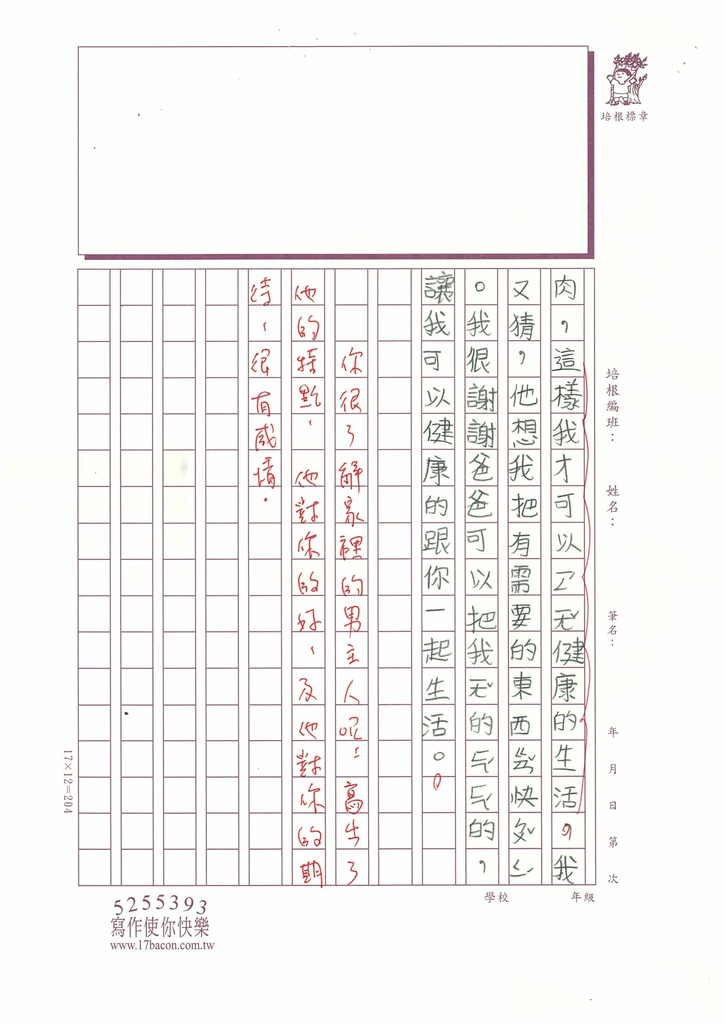 培根標章
培根編班：
姓名：
筆名：
年 月 日 第 次
肉，這樣我才可以健康的生活，我
又猜，他想我把有需要的東西快
。我很謝謝爸爸可以把我的的，
讓我可以健康的跟你一起生活。
你很了解家裡的男主人呢！寫出了
他的特點，他對你的好，及他對你的期
待，很有感情。
17×12=204
學校
年級
5255393
寫作使你快樂
www.17bacon.com.tw